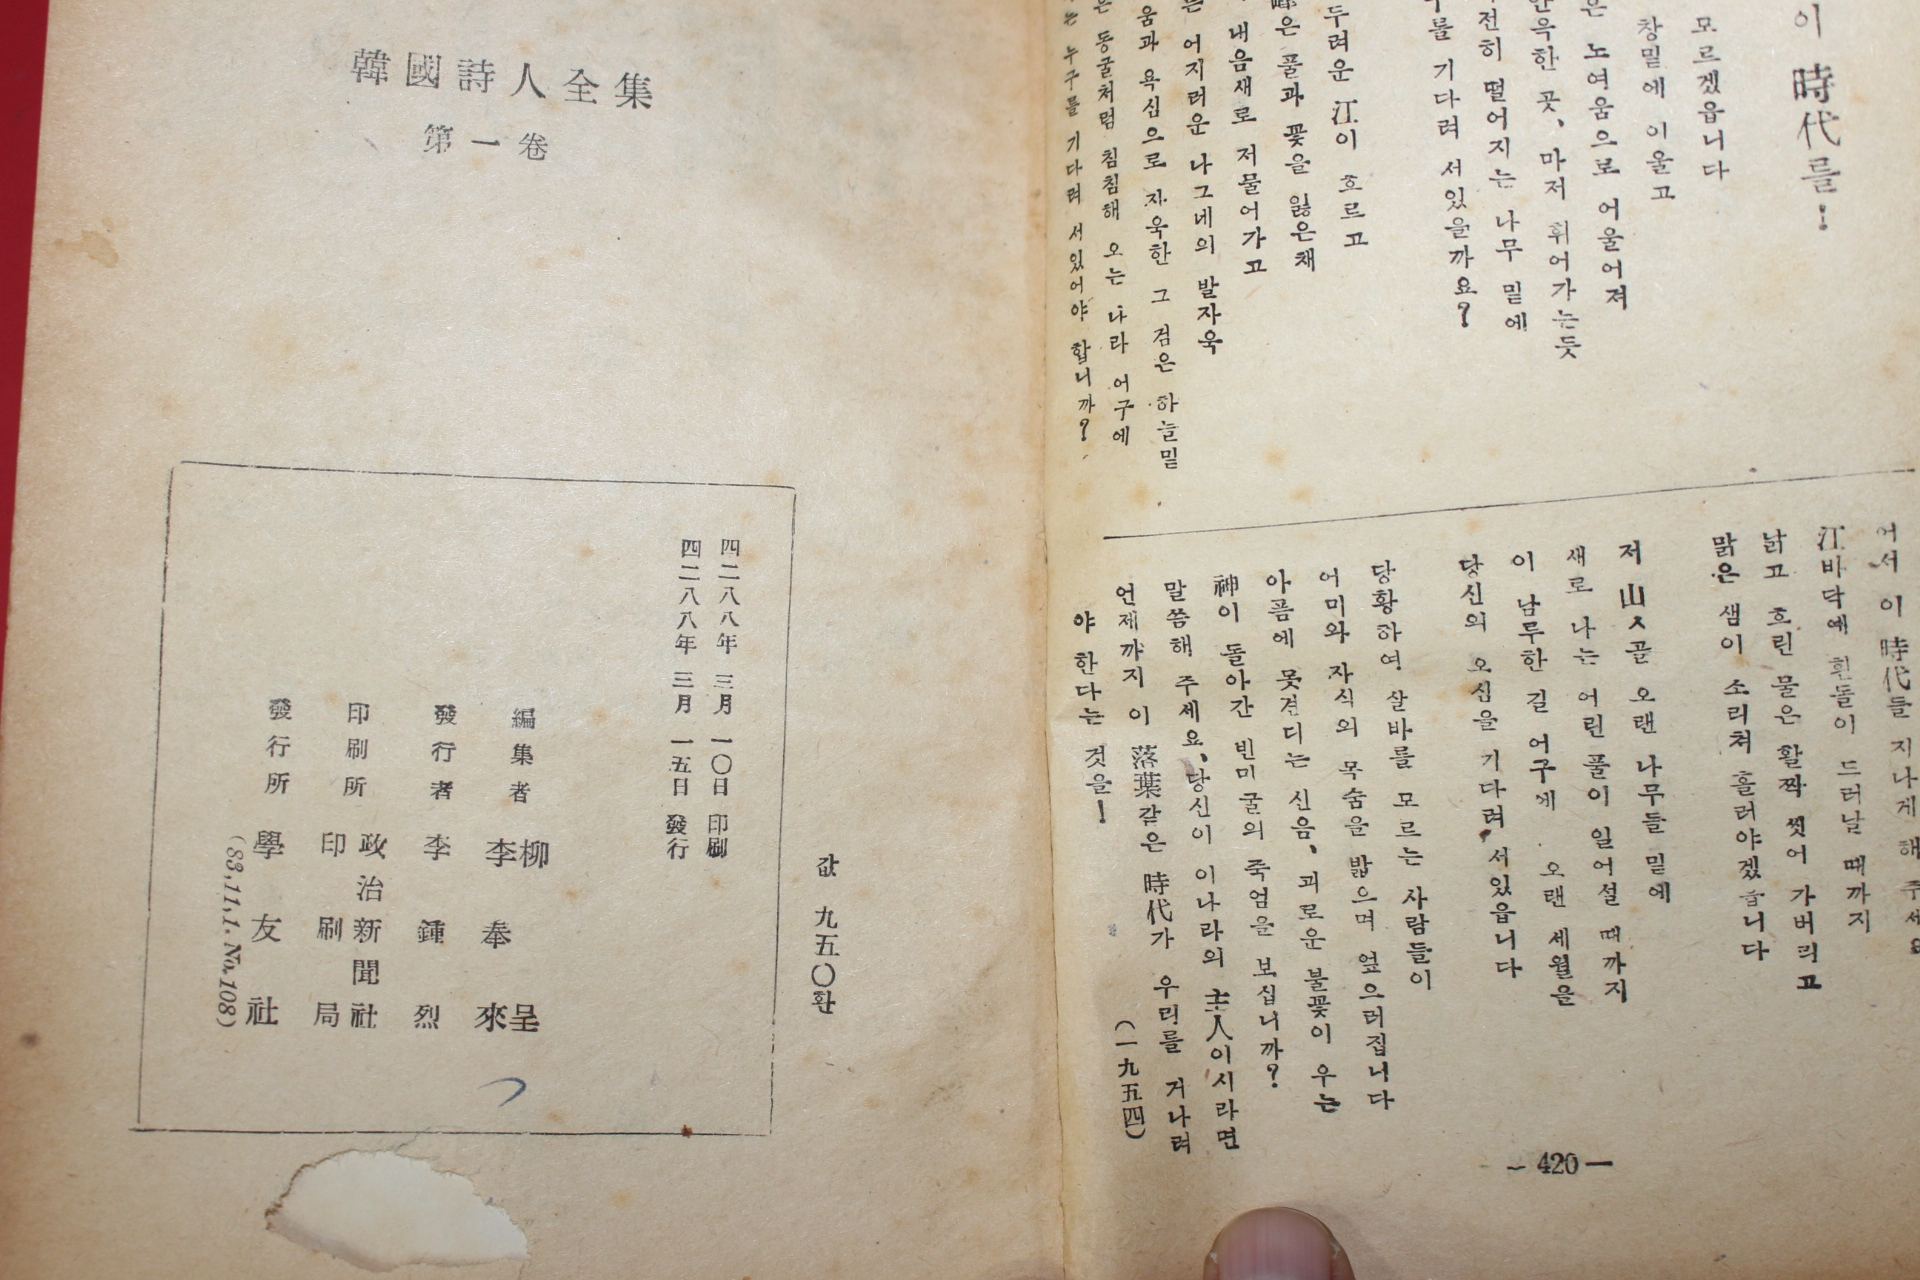 이 時代를!
모르겠읍니다
창밑에 이울고
은 노여움으로 어울어져
윽한 곳, 마저 휘어가는듯
전히 떨어지는 나무 밑에
를 기다려 서있을까요?
두려운 江이 흐르고
은 풀과 꽃을 잃은채
내음새로 저물어가고
는 어지러운 나그네의 발자욱
움과 욕심으로 자욱한 그 검은 하늘밑
은 동굴처럼 침침해 오는 나라 어구에
는 누구를 기다려 서있어야 합니까?
어서 이 時代를 지나게 해 주세요
江바닥에 흰돌이 드러날 때까지
낡고 흐린 물은 활짝 씻어 가버리고
맑은 샘이 소리쳐 흘러야겠습니다
저 山ㅅ골 오랜 나무들 밑에
새로 나는 어린 풀이 일어설 때까지
이 남루한 길 어구에 오랜 세월을
당신의 오심을 기다려 서있읍니다
당황하여 살바를 모르는 사람들이
어미와 자식의 목숨을 밟으며 엎으러집니다
아픔에 못견디는 신음, 괴로운 불꽃이 우는
神이 돌아간 빈미굴의 죽엄을 보십니까?
말씀해 주세요, 당신이 이나라의 主人이시라면
언제까지 이 落葉같은 時代가 우리를 거나려
야 한다는 것을!
(一九五四)
— 420 —
韓國詩人全集
第一卷
값 九五〇환
四二八八年 三月 一〇日 印刷
四二八八年 三月 一五日 發行
編集者 柳呈
李奉來
發行者 李鍾烈
印刷所 政治新聞社
印刷局
發行所 學友社
(83,11,1. No.108)